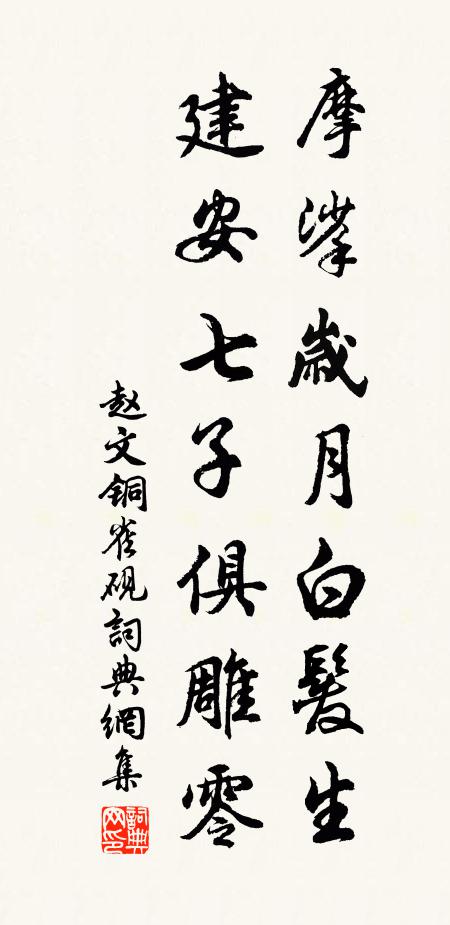 摩挲歲月白髮生
建安七子俱雕零
赵文銅雀硯詞典網集
詞典网印